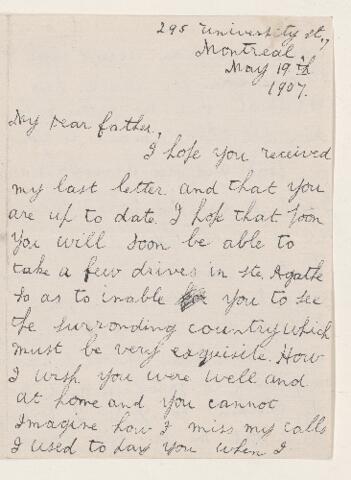 295 University St.,
Montreal,
May 19th
1907.
My Dear Father,
I hope you received
my last letter and that you
are up to date. I hope that
you will soon be able to
take a few drives in Ste. Agathe
so as to inable you to see
the surronding country which
must be very exquisite. How
I wish you were well and
at home and you cannot
Imagine how I miss my calls
I used to pay you when I